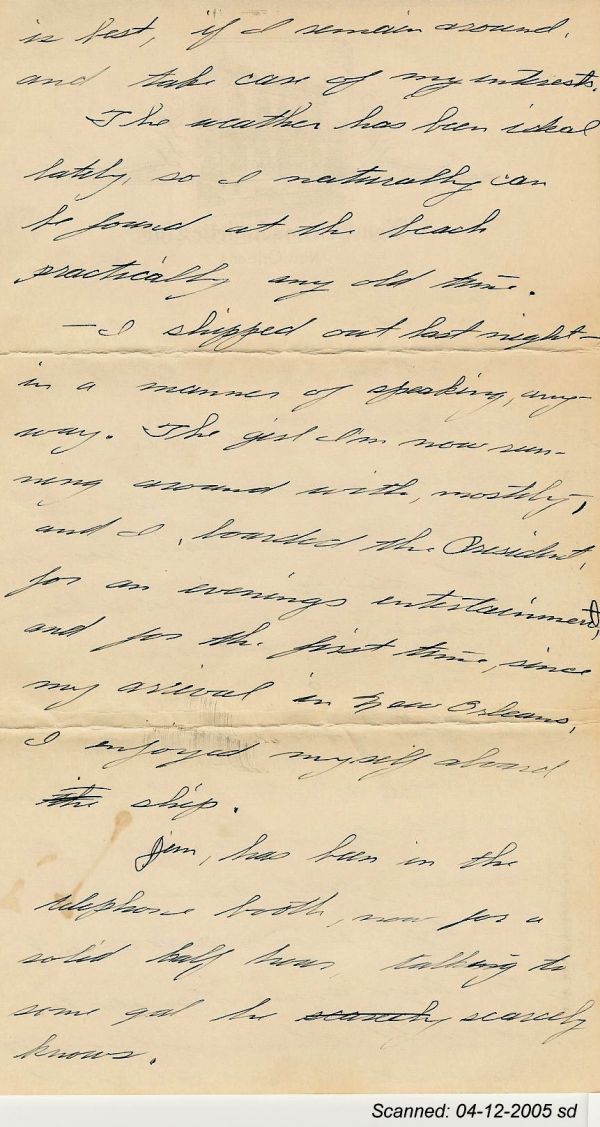 is best, if I remain around,
and take care of my interests.
The weather has been ideal
lately, so I naturally can
be found at the beach
practically any old time.
—I shipped out last night—
in a manner of speaking, any-
way. The girl I'm now run-
ning around with, mostly,
and I, boarded the President,
for an evenings entertainment,
and for the first time, since
my arrival in New Orleans,
I enjoyed myself aboard
the ship.
Jim, has been in the
telephone booth, now for a
solid half hour, talking to
some gal he scarcely scarcely
knows.
Scanned: 04-12-2005 sd